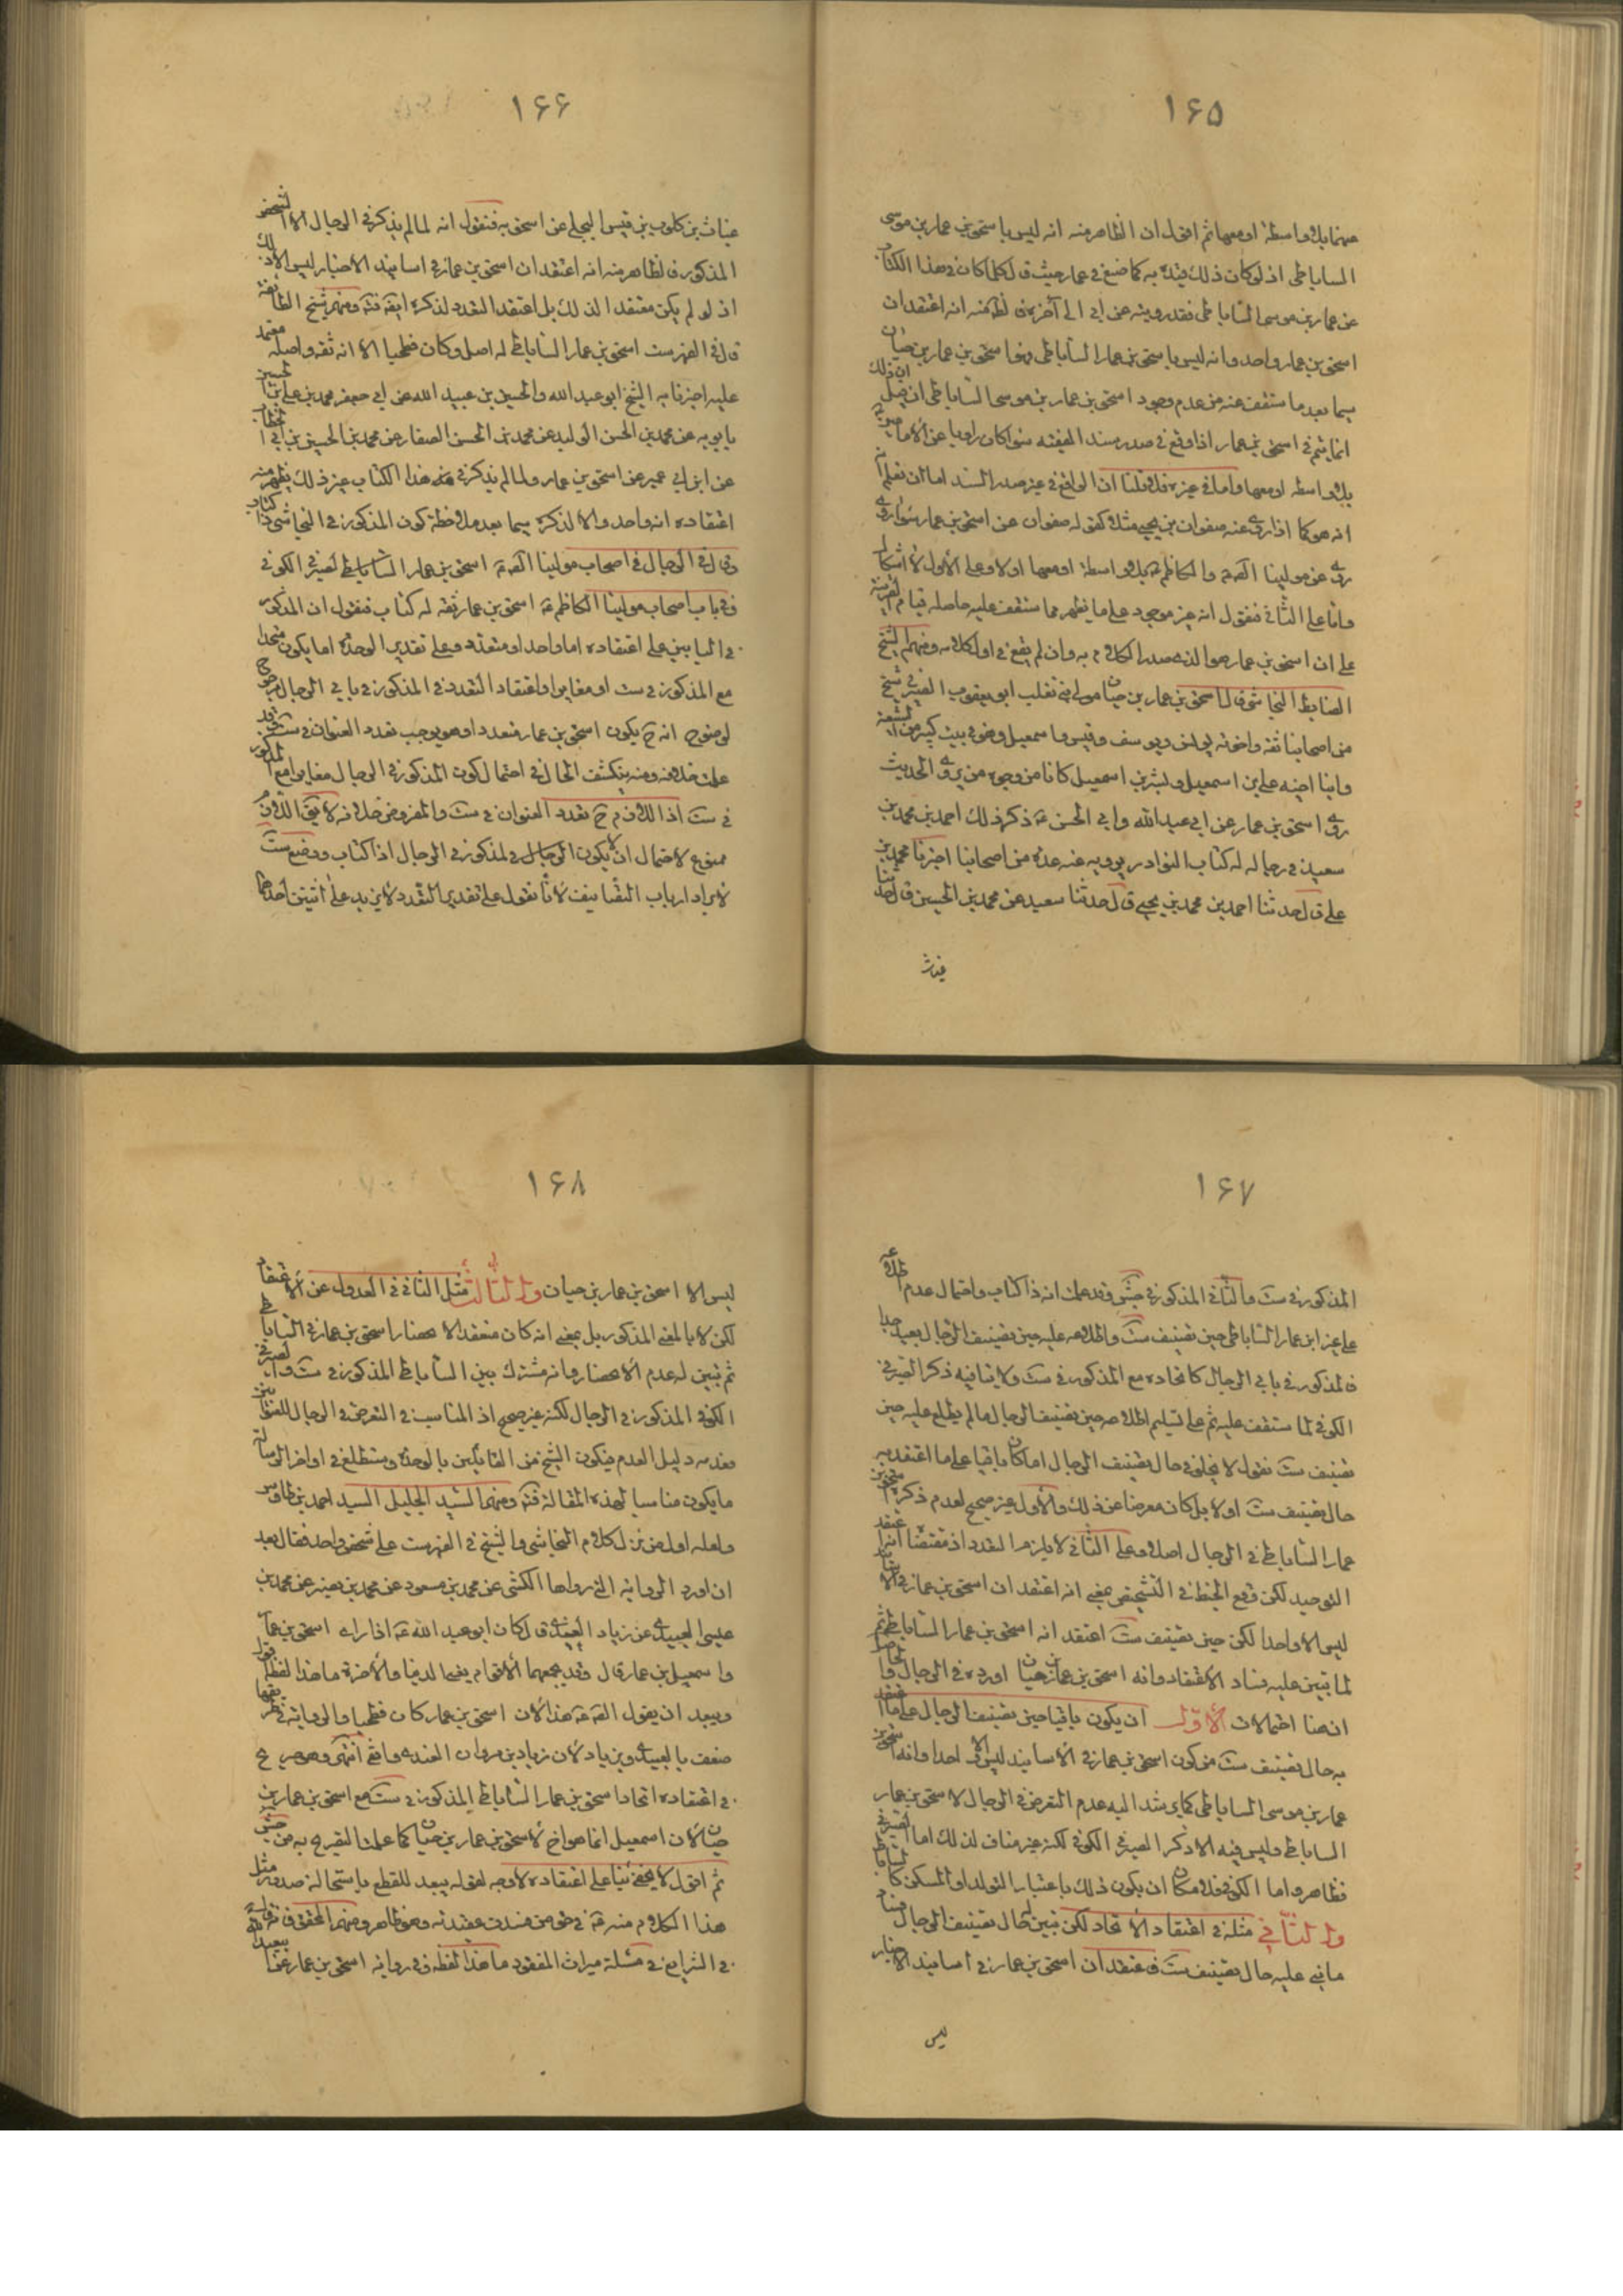 ١۶۵
منهما بلا واسطة او معها ثم اقول ان الظاهر منه انه ليس باسحق بن عمار بن موسى
الساباطى اذ لو كان ذلك قيده به كما صنع فى عمار حيث قال كلما كان فى هذا الكتاب
عن عمار بن موسى الساباطى فقد رويته عن ابى الى آخره فالظ منه انه اعتقد ان
اسحق بن عمار واحد وانه ليس باسحق بن عمار الساباطى وهو اسحق بن عمار بن حيان
سيما بعد ما ستقف عنه من عدم وجود اسحق بن عمار بن موسى الساباطى ان قيل ان ذلك
انما يتم فى اسحق بن عمار اذا وقع فى صدر سند الفقيه سواء كان راويا عن الامام
بلا واسطه او معها واما فى غيره فلا قلنا ان الواقع فى غير صدر السند اما ان نعلم
انه هو كما اذا روى عنه صفوان بن يحيى مثلا كقوله صفوان عن اسحق بن عمار سواء روى
روى عن مولينا الصادق والكاظم بلا واسطة او معها اولا وعلى الاول لا اشكال
واما على الثانى فنقول انه غير موجود على ما يظهر مما ستقف عليه حاصله قيام القرينة
على ان اسحق بن عمار هو الذى صدر الكلام به وان لم يقع فى اول كلامه ومنهم الشيخ
الضابط النجاشى قال اسحق بن عمار بن حيان مولى بنى تغلب ابو يعقوب الصيرفى شيخ
من اصحابنا ثقة واخوته يونس ويوسف وقيس واسمعيل وهو فى بيت كبير من الشيعة
وابنا اخيه على بن اسمعيل وبشر بن اسمعيل كانا من وجوه من روى الحديث
روى اسحق بن عمار عن ابى عبد الله وابى الحسن ع ذكر ذلك احمد بن محمد بن
سعيد فى رجاله له كتاب النوادر يرويه عنه عدة من اصحابنا اخبرنا محمد بن
على قال حدثنا احمد بن محمد بن يحيى قال حدثنا سعيد عن محمد بن الحسين قال حدثنا
غياث
١۶۶
غياث بن كلوب بن قيس البجلى عن اسحق به فنقول انه لما لم يذكر فى الرجال الا الشخص
المذكور فالظاهر منه انه اعتقد ان اسحق بن عمار فى اسانيد الاخبار ليس الا ذلك
اذ لو لم يكن معتقدا لذلك بل اعتقد التعدد لذكره ايضا ومنهم شيخ الطائفة
قال فى الفهرست اسحق بن عمار الساباطى له اصل وكان فطحيا الا انه ثقه واصله معتمد
عليه اخبرنا به الشيخ ابو عبد الله والحسين بن عبيد الله عن ابى جعفر محمد بن على بن الحسين
بابويه عن محمد بن الحسن الوليد عن محمد بن الحسن الصفار عن محمد بن الحسين بن ابى الخطاب
عن ابن ابى عمير عن اسحق بن عمار ولما لم يذكر فى هذا الكتاب غير ذلك يظهر منه
اعتقاده انه واحد والا لذكره سيما بعد ملاحظة كون المذكور فى النجاشى ذا كتاب
وقال فى الرجال فى اصحاب مولينا الصادق اسحق بن عمار الساباطى الصيرفى الكوفى
وفى باب اصحاب مولينا الكاظم ع اسحق بن عمار ثقة له كتاب فنقول ان المذكور
فى البابين على اعتقاده اما واحد او متعدد وعلى تقدير الوحدة اما يكون متحدا
مع المذكور فى ست او مغايرا واعتقاد التعدد فى المذكور فى بابى الرجال مرجوح
لوضوح انه ح يكون اسحق بن عمار متعددا وهو يوجب تعدد العنوان فى ست وقد
علمت خلافه ومنه ينكشف الحال فى احتمال كون المذكور فى الرجال مغايرا مع المذكور
فى ست اذ اللازم ح تعدد العنوان فى ست والمفروض خلافه لا يقال اللازم
ممنوع لاحتمال ان لا يكون المذكور فى الرجال ذا كتاب ووضع ست
لايراد ارباب التصانيف لانا نقول على تقدير التعدد لا يزيد على اثنين احدهما
١۶٧
المذكور فى ست والثانى المذكور فى جش وقد علمت انه ذا كتاب واحتمال عدم اطلاعه
على غير ابن عمار الساباطى حين تصنيف ست واطلاعه عليه حين تصنيف الرجال بعيد جدا
فالمذكور فى بابى الرجال كاتحاده مع المذكور فى ست ولا ينافيه ذكر الصيرفى
الكوفى لما ستقف عليه ثم على تسليم اطلاعه حين تصنيف الرجال ما لم يطلع عليه حين
تصنيف ست نقول لا يخلو فى حال تصنيف الرجال اما كان باقيا على ما اعتقد به
حال تصنيف ست اولا بل كان معرضا عن ذلك والاول غير صحيح لعدم ذكره اسحق بن
عمار الساباطى فى الرجال اصلا وعلى الثانى لا يلزم التعدد اذ مقتضاه اعتقد
التوحيد لكن وقع الخبط فى التشخيص بمعنى انه اعتقد ان اسحق بن عمار فى الاسانيد
ليس الا واحدا لكن حين تصنيف ست اعتقد انه اسحق بن عمار الساباطى ثم
لما تبين عليه فساد الاعتقاد وانه اسحق بن عمار بن حيان اورده فى الرجال والحاصل
ان هنا احتمالات الاول ان يكون باقيا حين تصنيف الرجال على ما اعتقد
به حال تصنيف ست من كون اسحق بن عمار فى الاسانيد ليس الا واحدا وانه اسحق بن
عمار بن موسى الساباطى كما يرشد اليه عدم التعرض فى الرجال لاسحق بن عمار
الساباطى وليس فيه الا ذكر الصيرفى الكوفى لكنه غير مناف لذلك اما الصيرفى
فظاهر واما الكوفى فلامكان ان يكون ذلك باعتبار التولد او المسكن كالساباطى
والثانى مثله فى اعتقاد الاتحاد لكن تبين له حال تصنيف الرجال فساد
ما بنى عليه حال تصنيف ست فاعتقد ان اسحق بن عمار فى اسانيد الاخبار
ليس
١۶٨
ليس الا اسحق بن عمار بن حيان والثالث مثل الثانى فى العدول عن الاعتقاد
لكن لا بالمعنى المذكور بل بمعنى انه كان معتقدا لانحصار اسحق بن عمار فى الساباطى
ثم تبين له عدم الانحصار وانه مشترك بين الساباطى المذكور فى ست والصيرفى
الكوفى المذكور فى الرجال لكنه غير صحيح اذ المناسب التعرض فى الرجال للعنوانين
فعدمه دليل العدم فيكون الشيخ من القائلين بالوحدة وستطلع فى اواخر الرسالة
ما يكون مناسبا لهذه المقالة ومنهم السيد الجليل السيد احمد بن طاوس
ولعله اول من نزل كلام النجاشى والشيخ فى الفهرست على شخص واحد فقال بعد
ان اورد الرواية التى رواها الكشى عن محمد بن مسعود عن محمد بن نصير عن محمد بن
عيسى العبيدى عن زياد القندى قال كان ابو عبد الله ع اذا راى اسحق بن عمار
واسمعيل بن عمار قال وقد يجمعهما لاقوام يعنى الدنيا والاخرة ما هذا لفظه
ويبعد ان يقول الصادق ع هذا لان اسحق بن عمار كان فطحيا والرواية فى طريقها
ضعف بالعبيدى وبزياد لان زياد بن مروان القندى واقفى انتهى وهو صريح
فى اعتقاده اتحاد اسحق بن عمار الساباطى المذكور فى ست مع اسحق بن عمار بن
حيان لان اسمعيل انما هو اخ لاسحق بن عمار بن حيان كما علمت التصريح به من جش
ثم اقول لا يخفى بناء على اعتقاده لا وجه لقوله يبعد للقطع باستحالة صدور مثل
هذا الكلام منه ع فى حق من فسدت عقيدته وهو ظاهر ومنهم المحقق
فى الشرايع فى مسئلة ميراث المفقود ما هذا لفظه وفى رواية اسحق بن عمار عن